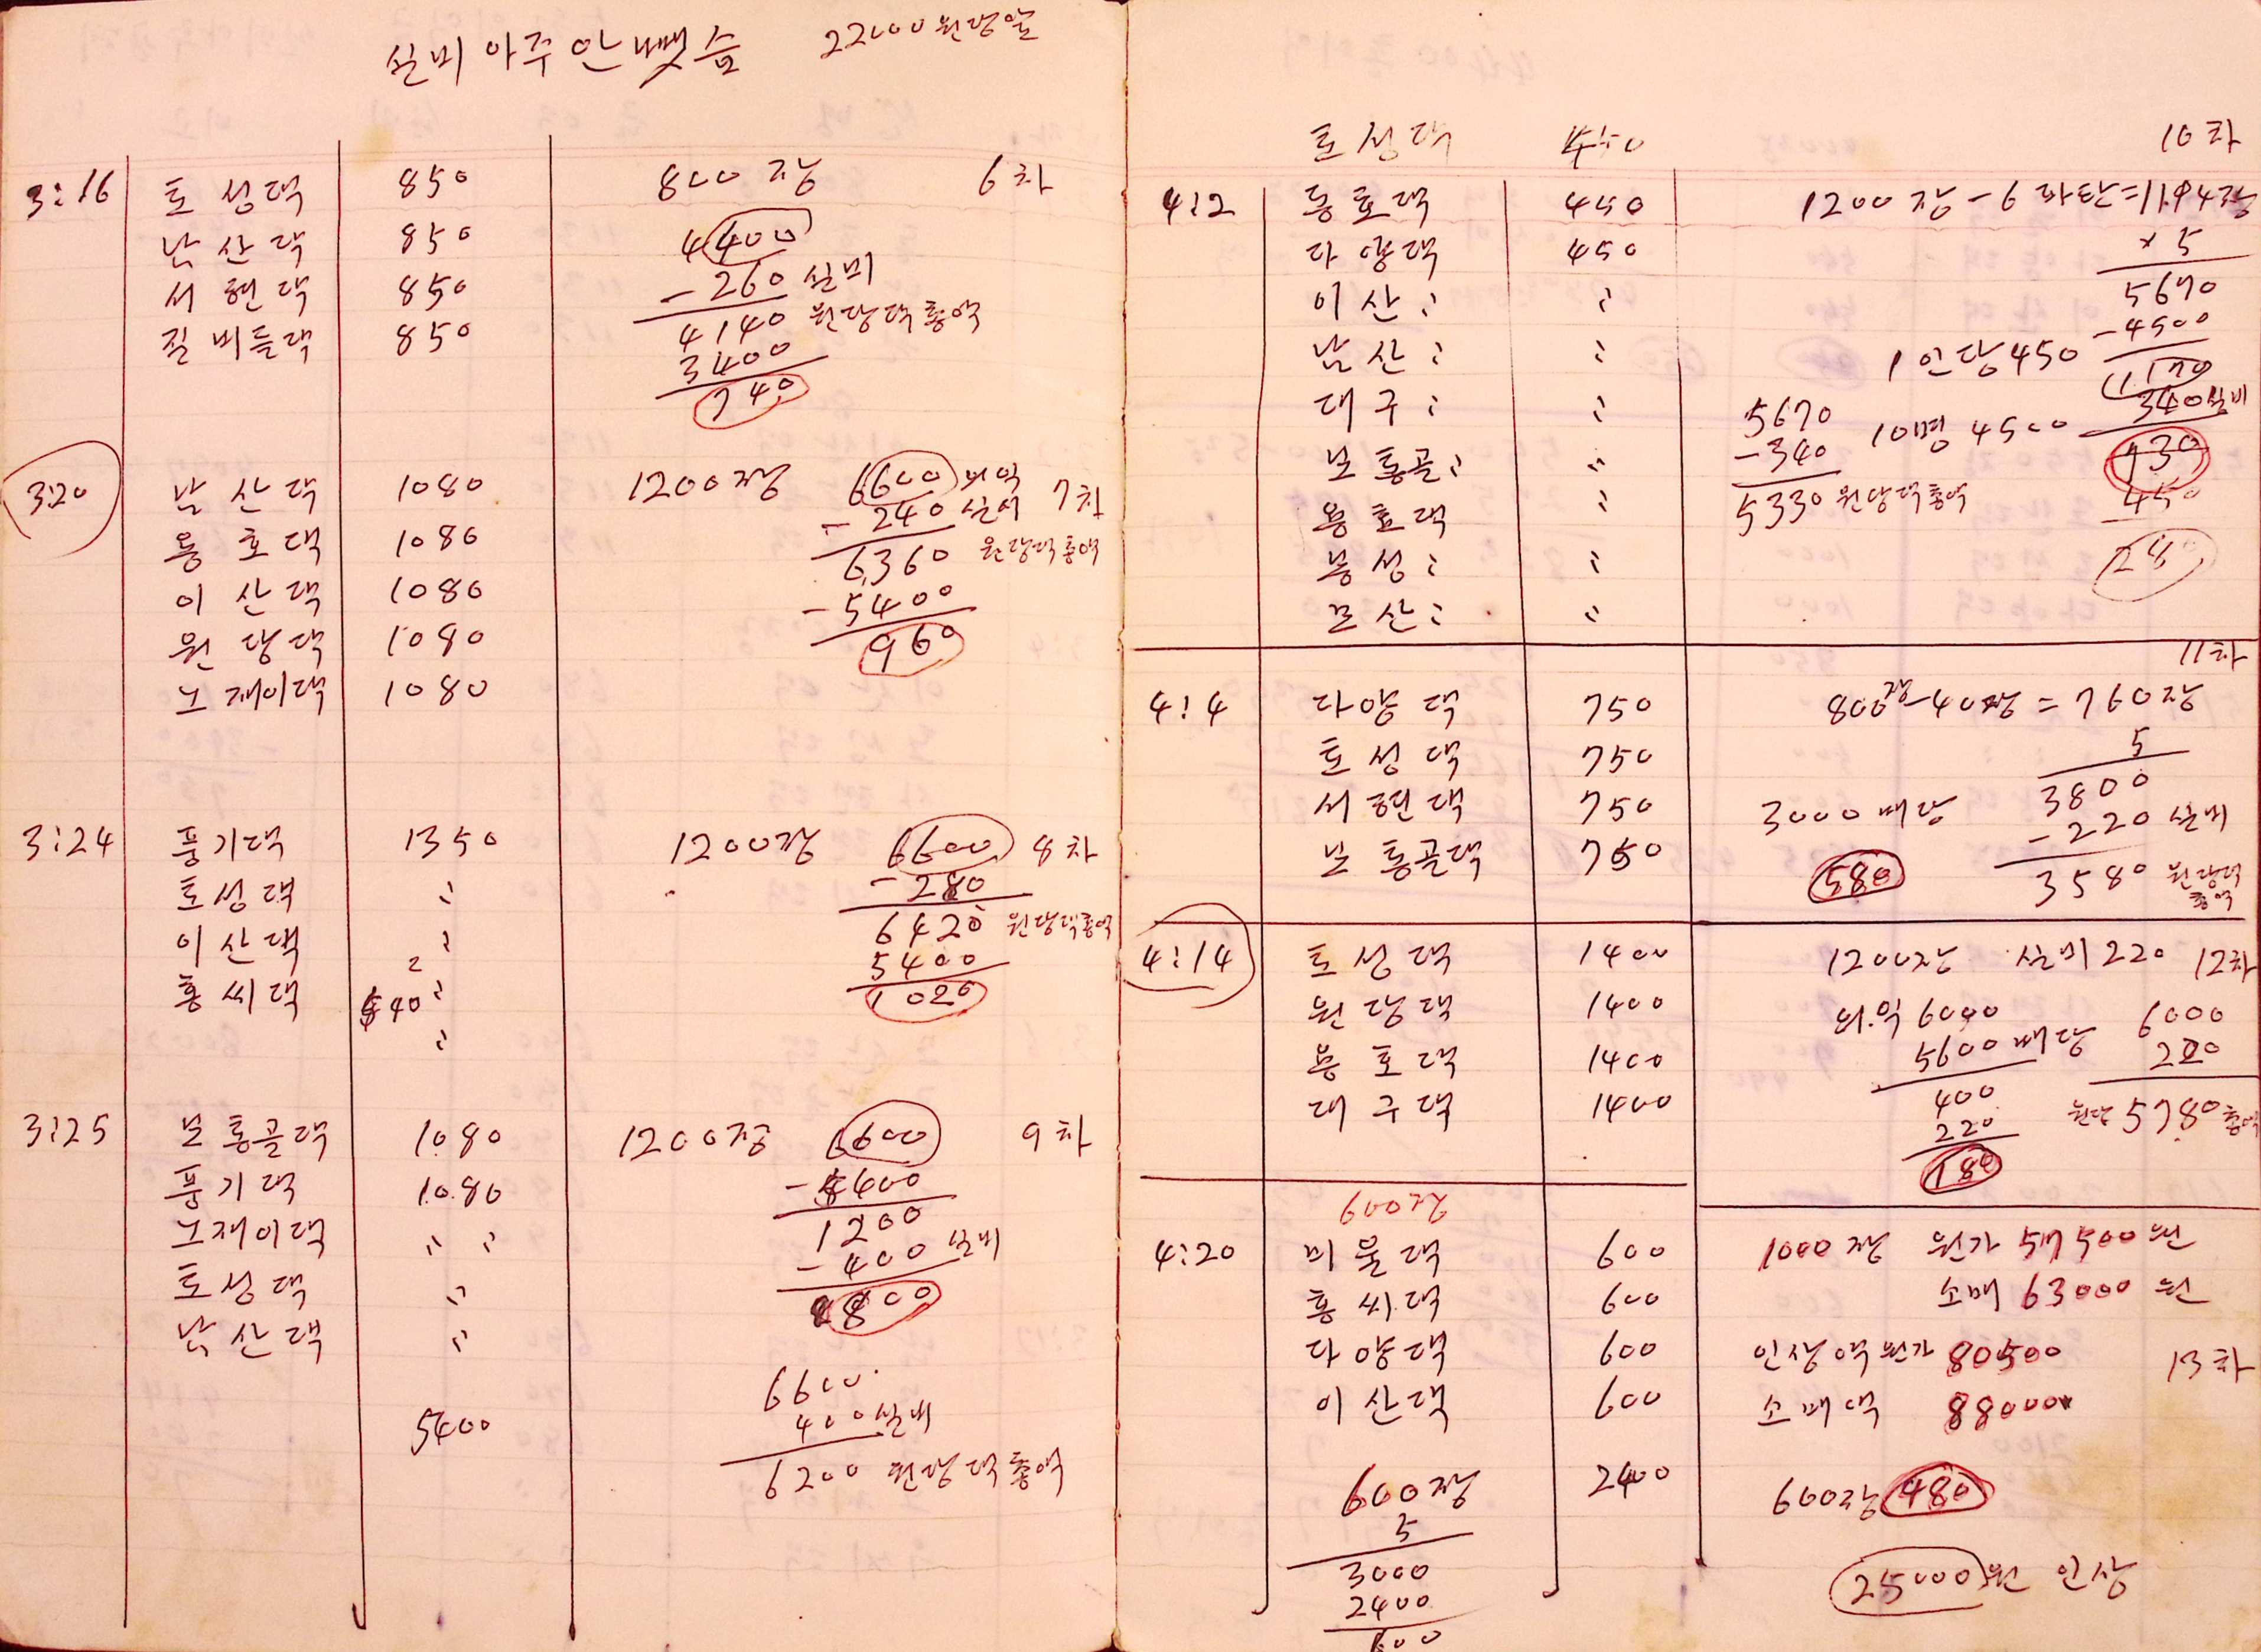 실비 아주 안뺏슴 22000원당일
3:16 토성댁 850 800장 6차
남산댁 850 4400
서현댁 850 -260 실비
질비들댁 850 4140 원당댁총액
3400
740
3:20 남산댁 1080 1200장 6600 이익 7차
용호댁 1080 -240 실비
이산댁 1080 6,360 원당댁총액
원당댁 1080 -5400
노재이댁 1080 960
3:24 풍기댁 1350 1200장 6600 8차
토성댁 〃 -280
이산댁 〃 6420 원당댁총액
홍씨댁 〃 5400
540 2
〃 1020
3:25 보통골댁 1080 1200장 6600 9차
풍기댁 1080 -5400
노재이댁 〃 〃 1200
토성댁 〃 -400 실비
남산댁 〃 800
6600
5400 400 실비
6200 원당댁총액
토성댁 450 10차
4:2 용호댁 450 1200장-6파탄=1194장
다양댁 450 ×5
이산〃 〃 5670
남산〃 〃 -4500
1인당450 1170
대구〃 〃 5670 340실비
보통골〃 〃 -340 10명 4500 730
용호댁 〃 5330 원당댁총액 450
봉성〃 〃 280
모산〃 〃
11차
4:4 다양댁 750 800장-40장=760장
토성댁 750 5
서현댁 750 3000 배당 3800
보통골댁 750 -220 실비
580 3580 원당댁
총액
4:14 토성댁 1400 1200장 실비220 12차
원당댁 1400 이익 6000 6000
용호댁 1400 5600 배당 220
대구댁 1400 400 원당 5780 총액
220
180
600장
4:20 미울댁 600 1000장 원가 57500원
홍씨댁 600 소매 63000원
다양댁 600 인상액원가 80500 13차
이산댁 600 소매액 88000
600장 2400 600장 480
5
3000 25000원 인상
2400
600